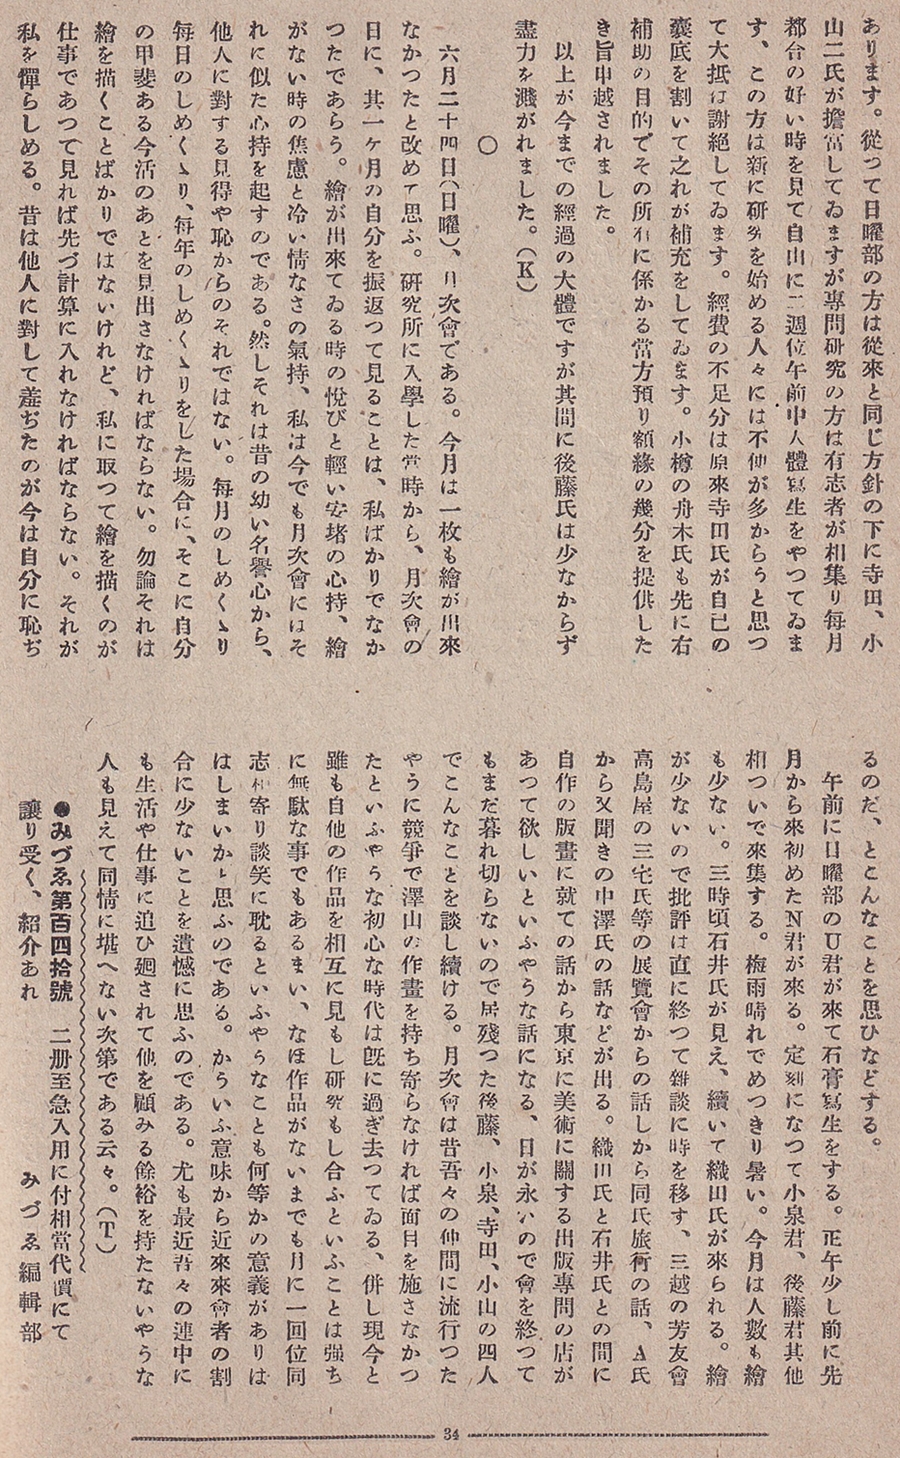 あります。從つて日曜部の方は從來と同じ方針の下に寺田、小
山二氏が擔當してゐますが專門研究の方は有志者が相集り每月
都合の好い時を見て自由に二週位午前中人體寫生をやつてゐま
す、この方は新に研究を始める人々には不便が多からうと思つ
て大抵は謝絕してゐます。經費の不足分は原來寺田氏が自己の
嚢底を割いて之れが補充をしてゐます。小樽の舟木氏も先に右
補助の目的でその所有に係かる當方預り額緣の幾分を提供した
き旨申越されました。
以上が今までの經過の大體ですが其間に後藤氏は少なからず
盡力を濺がれました。（K）
〇
六月二十四日（日曜）、月次會である。今月は一枚も繪が出來
なかつたと改めて思ふ。硏究所に入學した當時から、月次會の
日に、其一ヶ月の自分を振返つて見ることは、私ばかりでなか
つたであらう。繪が出來てゐる時の悅びと輕い安堵の心持、繪
がない時の焦慮と冷い情なさの氣持、私は今でも月次會にはそ
れに似た心持を起すのである。然しそれは昔の幼い名譽心から、
他人に對する見得や恥からのそれではない。每月のしめくゝり
每日のしめくゝり、每年のしめくゝりをした場合に、そこに自分
の甲斐ある今活のあとを見出さなければならない。勿論それは
繪を描くことばかりではないけれど、私に取つて繪を描くのが
仕事であつて見れば先づ計算に入れなければならない。それが
私を憚らしめる。昔は他人に對して羞ぢたのが今は自分に恥ぢ
るのだ、とこんなことを思ひなどする。
午前に日曜部のU君が來て石膏寫生をする。正午少し前に先
月から來初めたN君が來る。定刻になつて小泉君、後藤君其他
相ついで來集する。梅雨晴れでめつきり暑い。今月は人數も繪
も少ない。三時頃石井氏が見え、續いて織田氏が來られる。繪
が少ないので批評は直に終つて雜談に時を移す、三越の芳友會
高島屋の三宅氏等の展覽會からの話しから同氏旅行の話、A氏
から又聞きの中澤氏の話などが出る。織田氏と石井氏との間に
自作の版畫に就ての話から東京に美術に關する出版專門の店が
あつて欲しいといふやうな話になる、日が永いので會を終つて
もまだ暮れ切らないので居殘つた後藤、小泉、寺田、小山の四人
でこんなことを談し續ける。月次會は昔吾々の仲間に流行つた
やうに競爭で澤山の作畫を持ち寄らなければ面目を施さなかつ
たといふやうな初心な時代は旣に過ぎ去つてゐる、併し現今と
雖も自他の作品を相互に見もし硏究もし合ふといふことは强ち
に無駄な事でもあるまい、なほ作品がないまでも月に一回位同
志相寄り談笑に耽るといふやうなことも何等かの意義がありは
はしまいかと思ふのである。かういふ意味から近來來會者の割
合に少ないことを遺憾に思ふのである。尤も最近吾々の連中に
も生活や仕事に追ひ廻されて他を顧みる餘裕を持たないやうな
人も見えて同情に堪へない次第である云々。（T）
●みづゑ第百四拾號　二册至急入用に付相當代價にて
讓り受く、紹介あれ　みづゑ編輯部
34